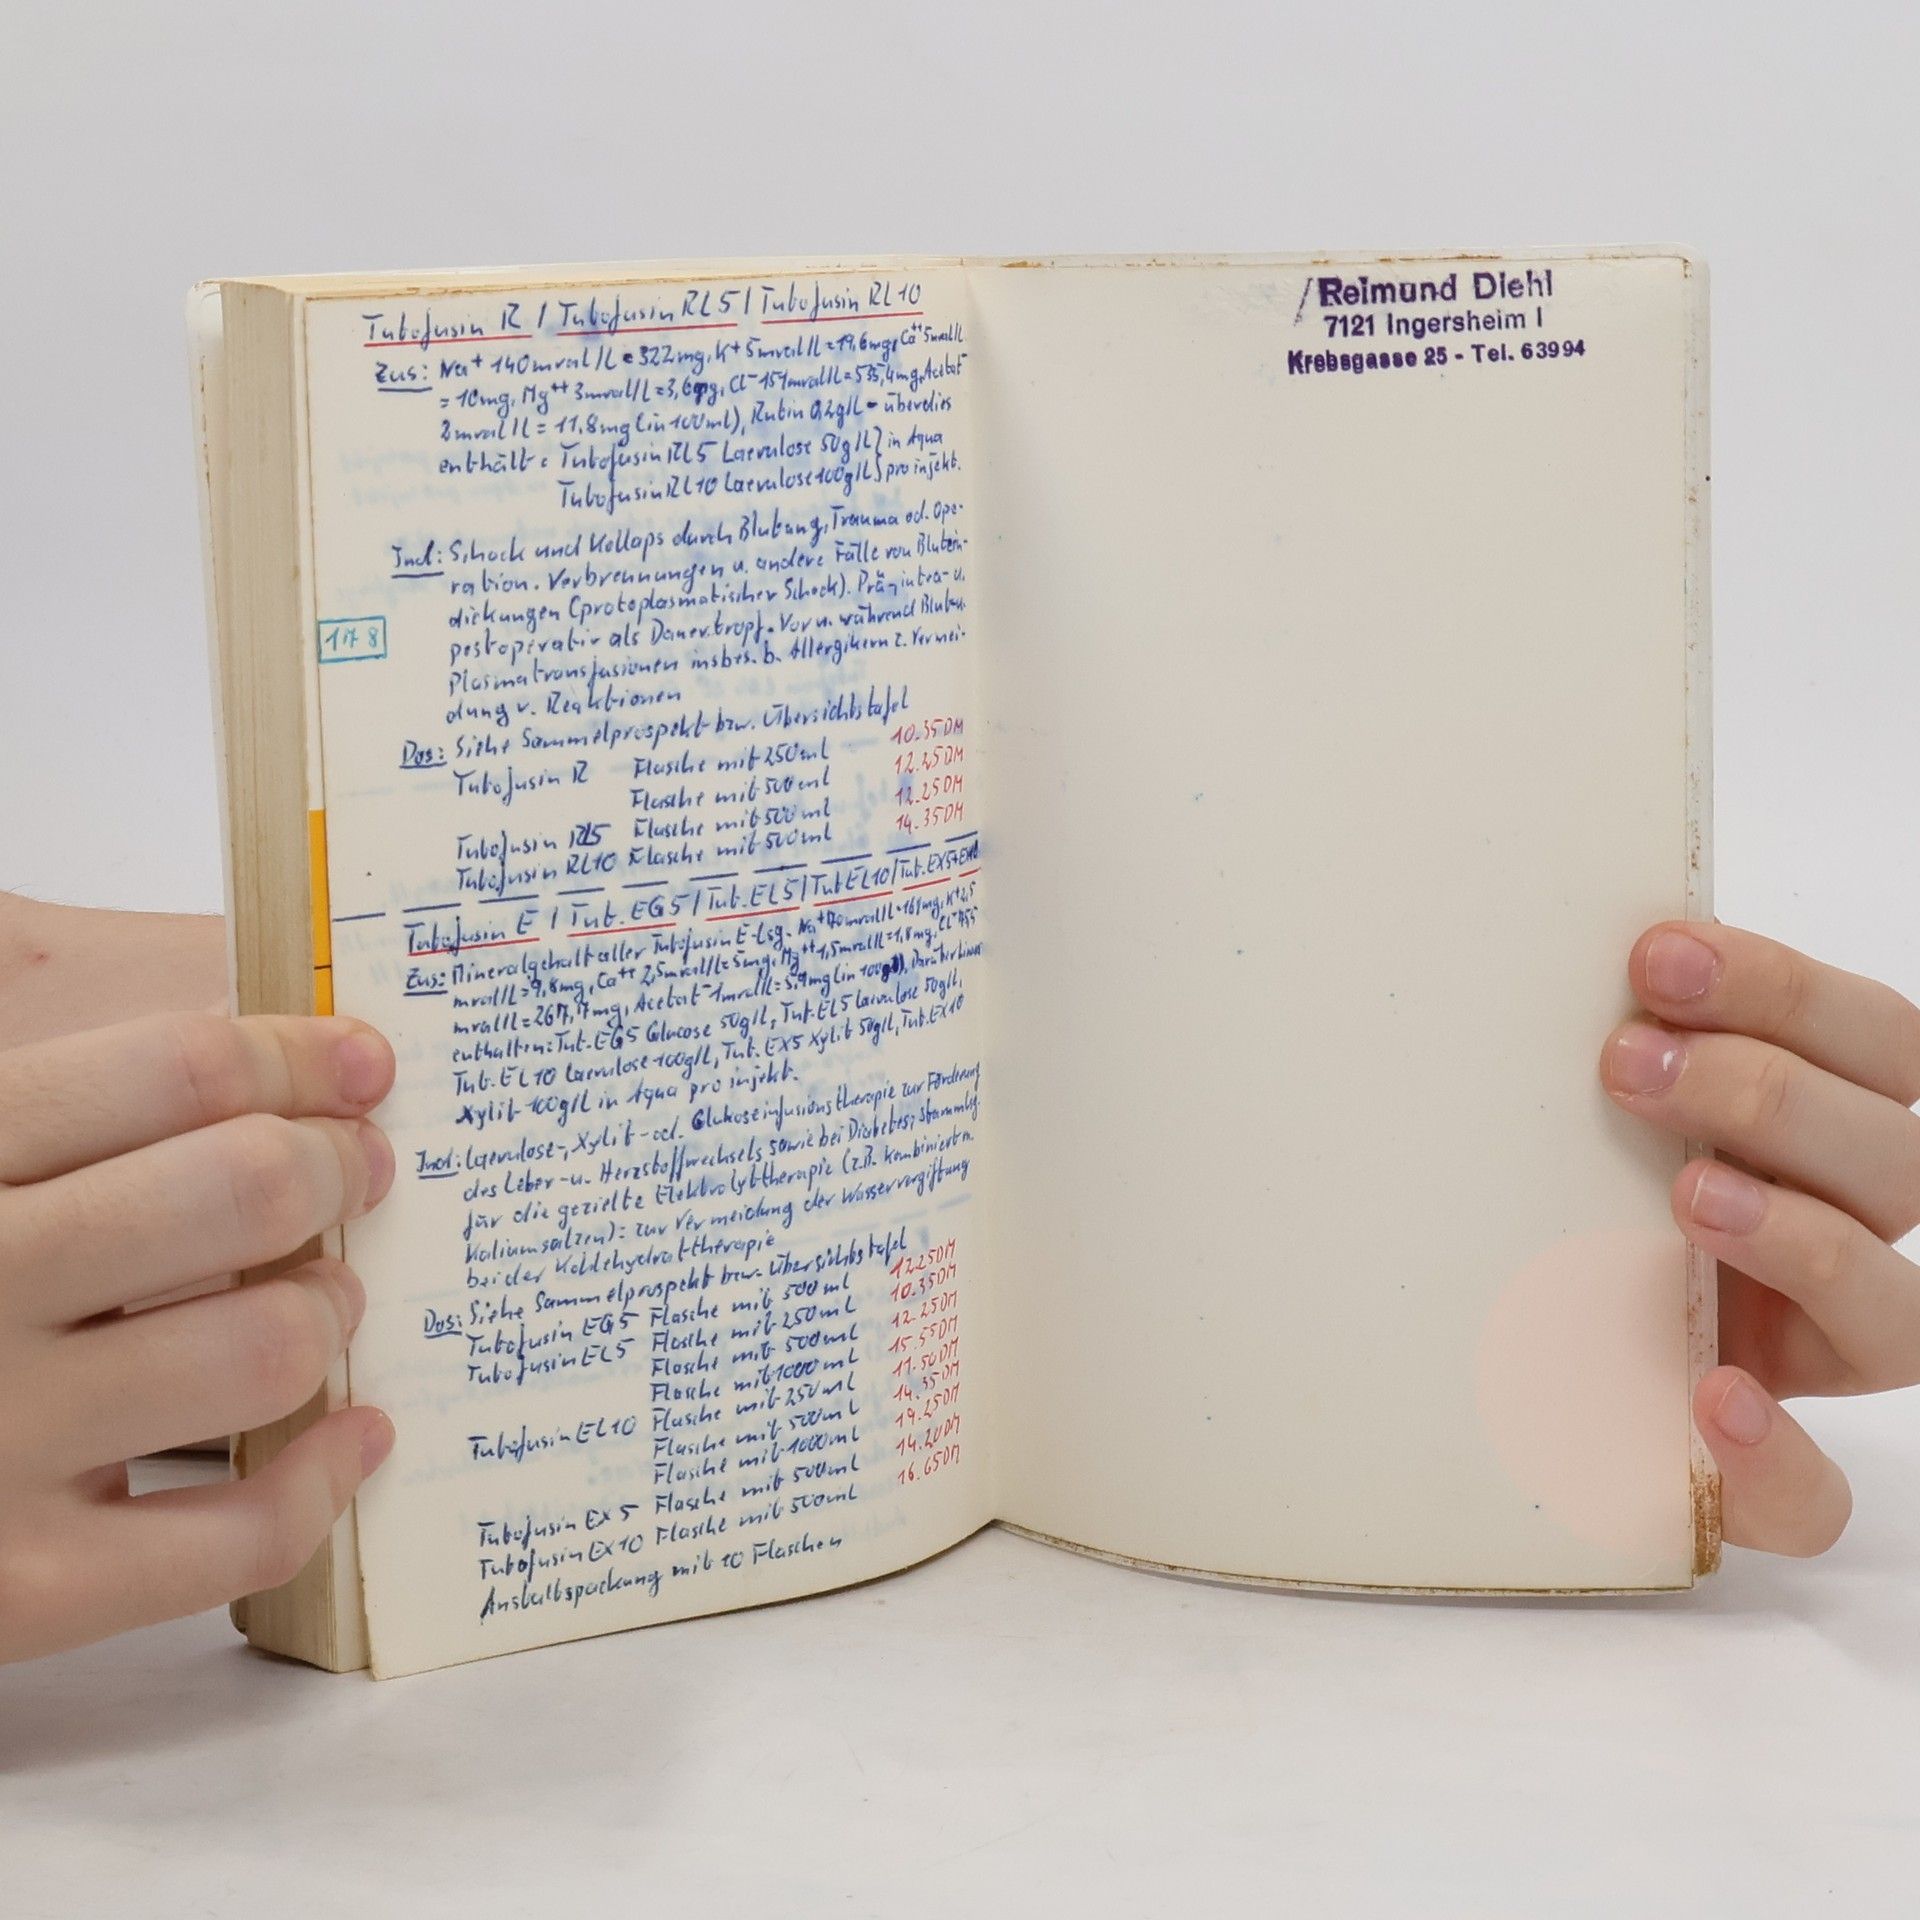 Tutofusin R / Tutofusin RL5 / Tutofusin RL10
Zus: Na⁺ 140mval/L = 322mg, K⁺ 5mval/L = 19,6mg, Ca⁺⁺ 5mval/L
= 10mg, Mg⁺⁺ 3mval/L = 3,6mg, Cl⁻ 151mval/L = 535,4mg, Acetat⁻
2mval/L = 11,8mg (in 100ml), Rutin 0,2g/L - überdies
enthält: Tutofusin RL5 Laevulose 50g/L } in Aqua
Tutofusin RL10 Laevulose 100g/L } pro injekt.
Ind: Schock und Kollaps durch Blutung, Trauma od. Ope-
ration. Verbrennungen u. andere Fälle von Blutein-
dickungen (protoplasmatischer Schock). Prä-, intra- u.
postoperativ als Dauertropf. Vor u. während Blut- u.
Plasmatransfusionen insbes. b. Allergikern z. Vermei-
dung v. Reaktionen
178
Dos: Siehe Sammelprospekt bzw. Übersichtstafel
Tutofusin R Flasche mit 250ml 10.35DM
Flasche mit 500ml 12.25DM
Tutofusin RL5 Flasche mit 500ml 12.25DM
Tutofusin RL10 Flasche mit 500ml 14.35DM
Tutofusin E / Tut. EG5 / Tut. EL5 / Tut EL10 / Tut. EX5+EX10
Zus: Mineralgehalt aller Tutofusin E-Lsg. Na⁺ 70mval/L = 161mg, K⁺ 2,5
mval/L = 9,8mg, Ca⁺⁺ 2,5mval/L = 5mg, Mg⁺⁺ 1,5mval/L = 1,8mg, Cl⁻ 75,5
mval/L = 267,7mg, Acetat⁻ 1mval/L = 5,9mg (in 100ml), Darüberhinaus
enthalten: Tut. EG5 Glucose 50g/L, Tut. EL5 Laevulose 50g/L,
Tut. EL10 Laevulose 100g/L, Tut. EX5 Xylit 50g/L, Tut. EX10
Xylit 100g/L in Aqua pro injekt.
Ind: Laevulose-, Xylit- od. Glukoseinfusionstherapie zur Förderung
des Leber- u. Herzstoffwechsels sowie bei Diabetes; Stammlsg.
für die gezielte Elektrolyttherapie (z.B. kombiniert m.
Kaliumsalzen): zur Vermeidung der Wasservergiftung
bei der Kohlehydrattherapie
Dos: Siehe Sammelprospekt bzw. Übersichtstafel
Tutofusin EG5 Flasche mit 500ml 12.25DM
Tutofusin EL5 Flasche mit 250ml 10.35DM
Flasche mit 500ml 12.25DM
Flasche mit 1000ml 15.55DM
Tutofusin EL10 Flasche mit 250ml 11.50DM
Flasche mit 500ml 14.35DM
Flasche mit 1000ml 19.25DM
Tutofusin EX5 Flasche mit 500ml 14.20DM
Tutofusin EX10 Flasche mit 500ml 16.65DM
Anstaltspackung mit 10 Flaschen
Reimund Diehl
7121 Ingersheim I
Krebsgasse 25 - Tel. 63994